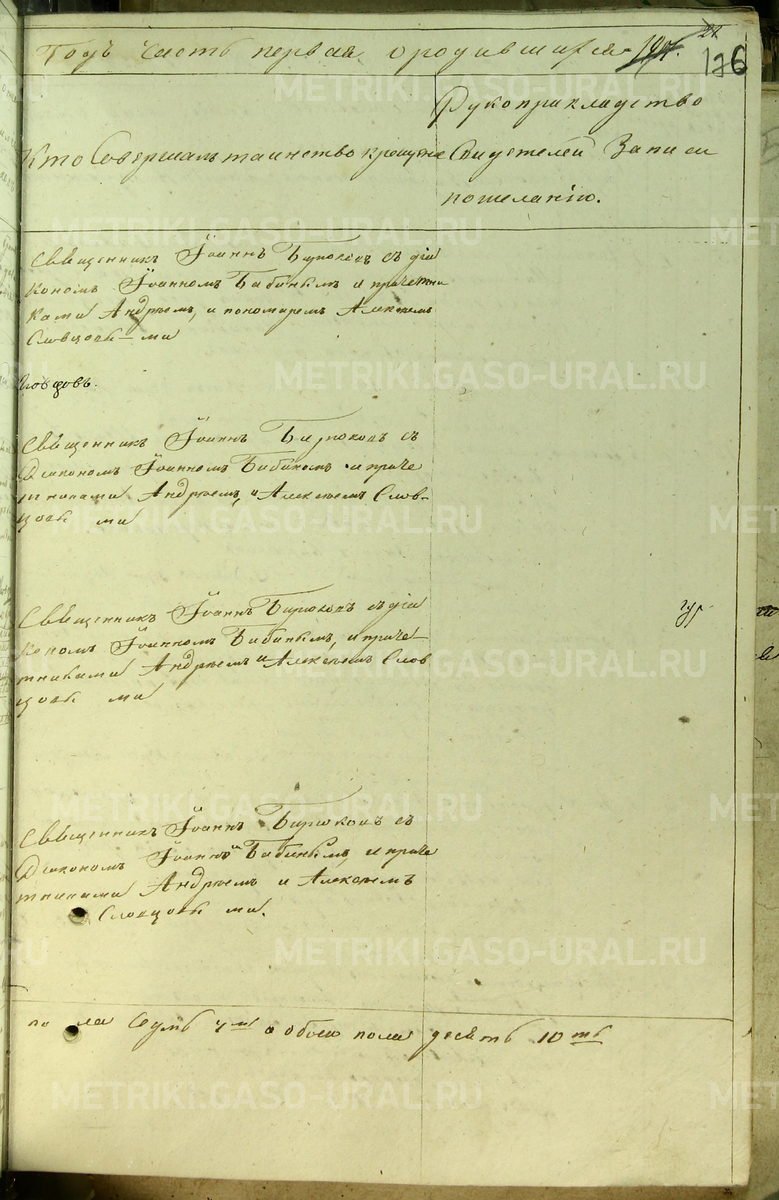 Годъ Часть первая о родившихся.
22
176
Рукоприкладство
Кто Совершалъ таинство крещенія
Свидетелей Записи
пожеланію.
Священникъ Іоаннъ Бирюковъ съ діа
кономъ Іоанномъ Бабинымъ и причетни
ками Андреемъ, и пономаремъ Алексеемъ
Словцовы-ми
Священникъ Іоаннъ Бирюковъ съ
Діакономъ Іоанномъ Бабинымъ и приче
тниками Андреемъ, и Алексеемъ Слов-
цовы ми
Священникъ Іоаннъ Бирюковъ съ діа
кономъ Іоанномъ Бабинымъ, и приче
тниками Андреемъ и Алексеемъ Слов
цовы ми
Священникъ Іоаннъ Бирюковъ съ
Діакономъ Іоанномъ Бабинымъ, и приче
тниками Андреемъ и Алексеемъ
Словцовы ми.
по ла Седмь 7мь а обоего пола десять 10ть
METRIKI.GASO-URAL.RU